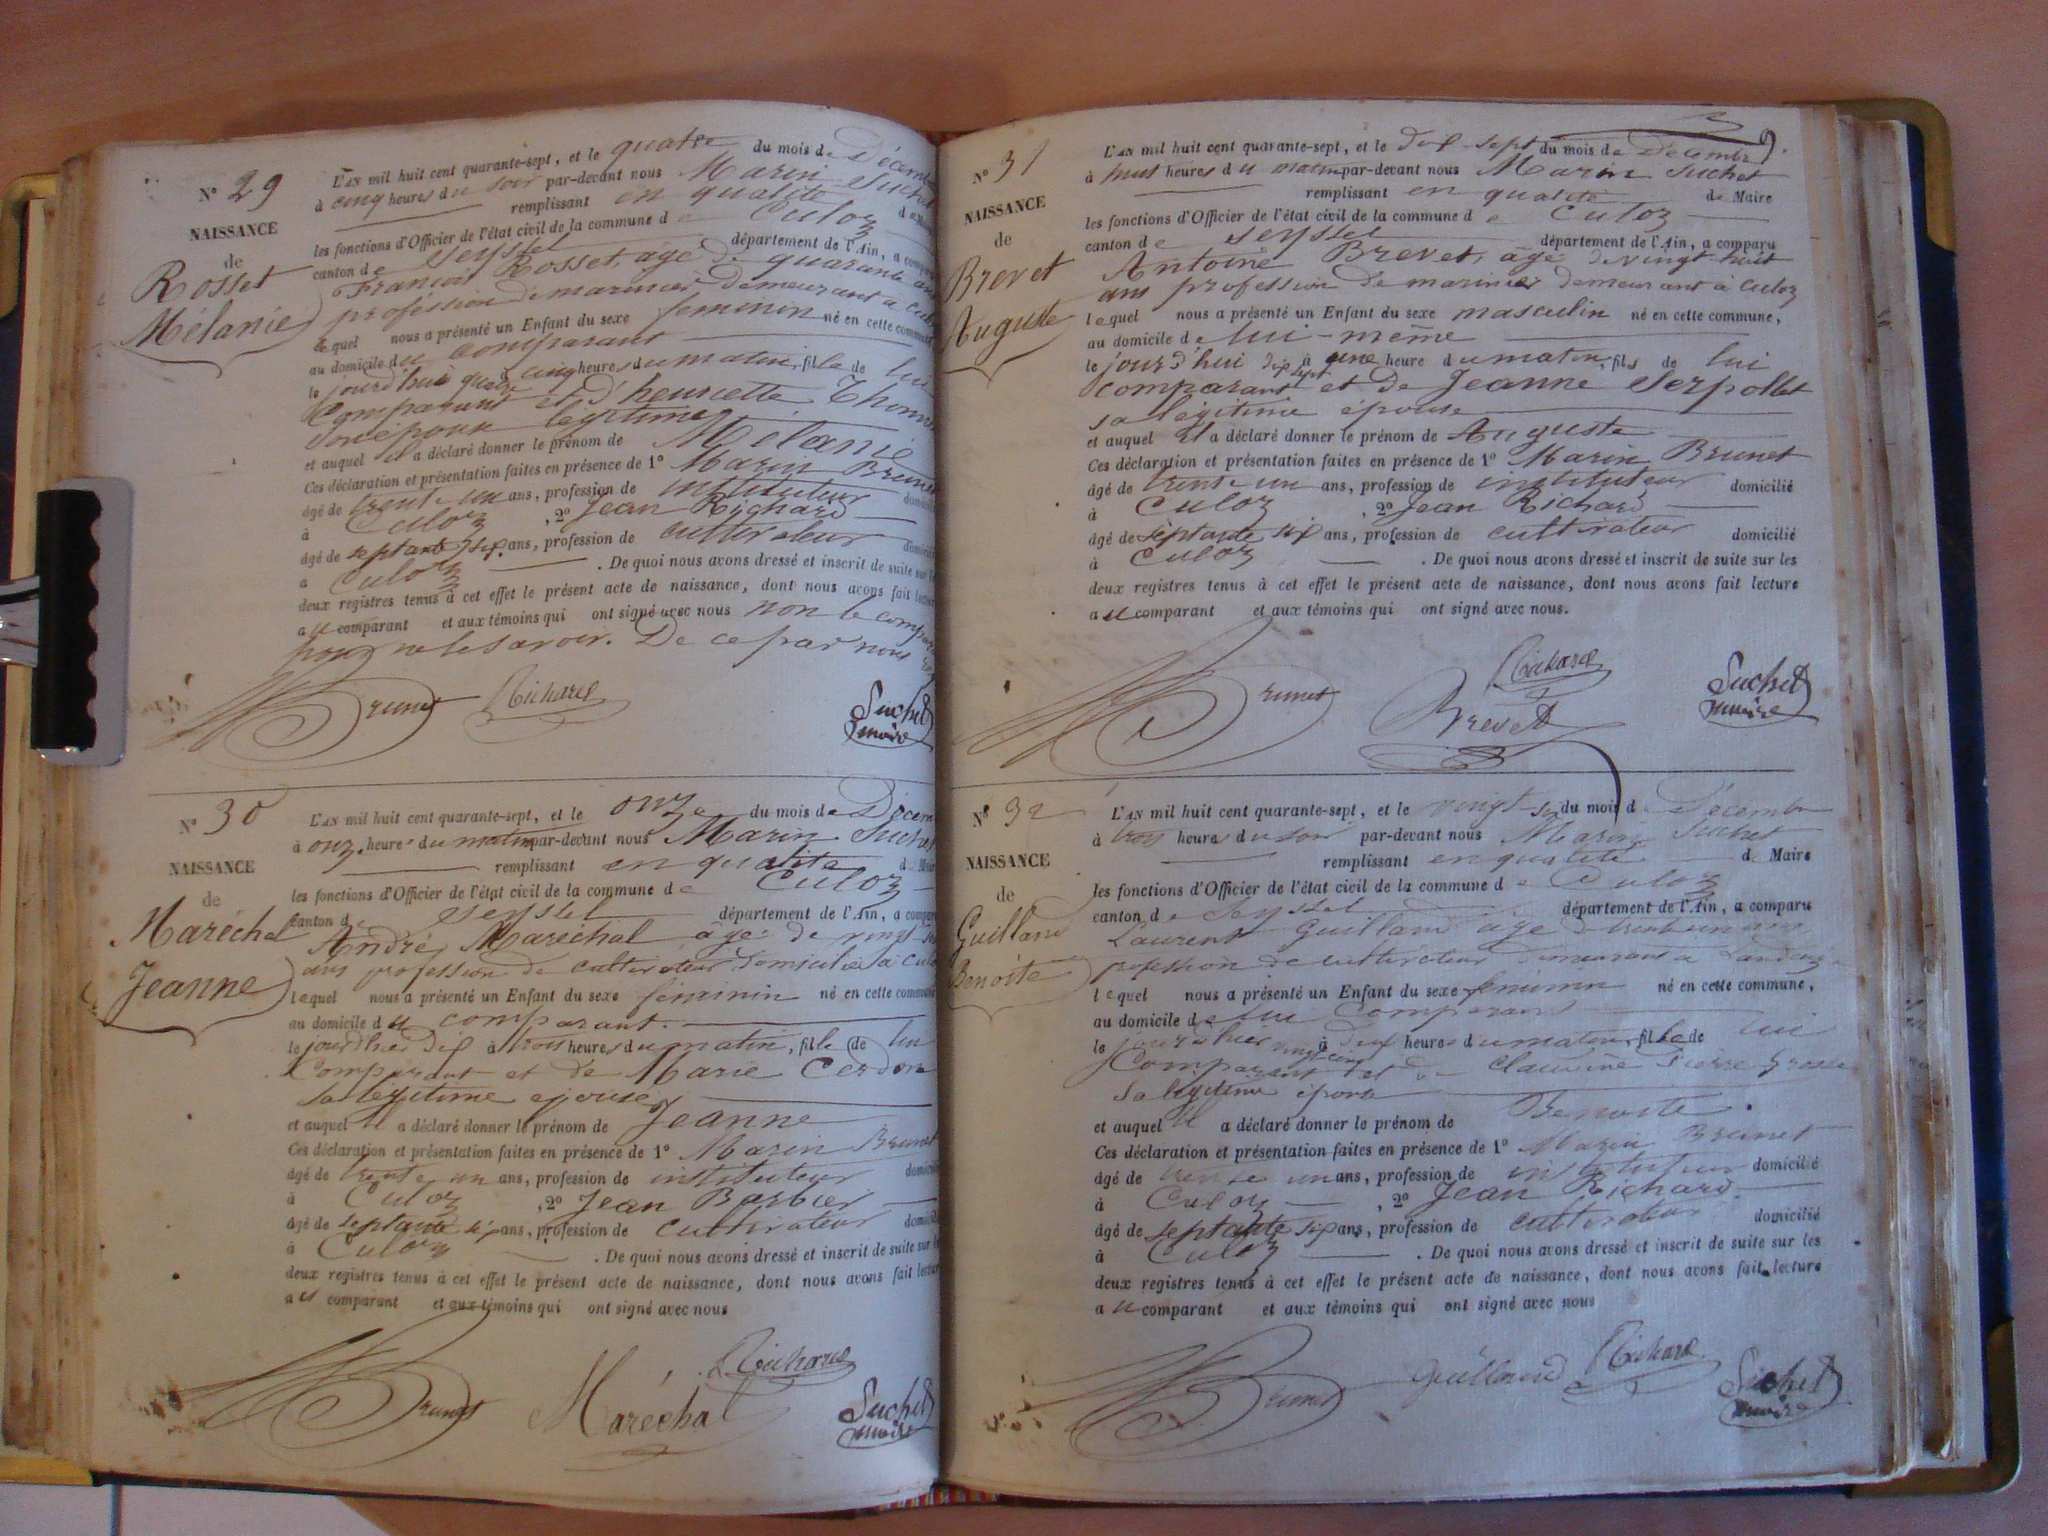 N° 29
NAISSANCE
de
Rosset
Mélanie
L'AN mil huit cent quarante-sept, et le quatre du mois de Décem
à cinq heures du soir par-devant nous Marin Suchet
remplissant en qualité de
les fonctions d'Officier de l'état civil de la commune de Culoz
canton de Seyssel département de l'Ain, a compa
François Rosset, âgé de quarante ans
profession de marinier demeurant à Culoz
lequel nous a présenté un Enfant du sexe feminin né en cette commune
au domicile du comparant
le jourd'hui quatre à cinq heures du matin, fille de lui
Comparant et d'henriette Thom
son épouse légitime
et auquel il a déclaré donner le prénom de Mélanie
Ces déclaration et présentation faites en présence de 1° Marin Brunet
âgé de trente un ans, profession de instituteur domicil
à Culoz, 2° Jean Richard
âgé de septante six ans, profession de cultivateur domicilié
à Culoz. De quoi nous avons dressé et inscrit de suite sur l
deux registres tenus à cet effet le présent acte de naissance, dont nous avons fait lectur
au comparant et aux témoins qui ont signé avec nous non le compa
pour ne le savoir. De ce par nous
Brunet Richard Suchet
maire
N° 30
NAISSANCE
de
Maréchal
Jeanne
L'AN mil huit cent quarante-sept, et le onze du mois de Décem
à onze heures du matin par-devant nous Marin Suchet
remplissant en qualité de Mair
les fonctions d'Officier de l'état civil de la commune de Culoz
canton de Seyssel département de l'Ain, a compar
André Maréchal âgé de vingt
ans profession de cultivateur domicilié à Culo
lequel nous a présenté un Enfant du sexe féminin né en cette commune
au domicile du comparant.
le jourd'hier dix à trois heures du matin, fille de lui
Comparant et de Marie Cerdon
sa légitime épouse
et auquel il a déclaré donner le prénom de Jeanne
Ces déclaration et présentation faites en présence de 1° Marin Brunet
âgé de trente un ans, profession de instituteur domicilié
à Culoz, 2° Jean Barbier
âgé de septante six ans, profession de cultivateur domicilié
à Culoz. De quoi nous avons dressé et inscrit de suite sur le
deux registres tenus à cet effet le présent acte de naissance, dont nous avons fait lectur
au comparant et aux témoins qui ont signé avec nous
Brunet Maréchal Richard Suchet
maire
N° 31
NAISSANCE
de
Brevet
Auguste
L'AN mil huit cent quarante-sept, et le dix-sept du mois de Décembre
à huit heures du matin par-devant nous Marin Suchet
remplissant en qualité de Maire
les fonctions d'Officier de l'état civil de la commune de Culoz
canton de Seyssel département de l'Ain, a comparu
Antoine Brevet, âgé de vingt huit
ans profession de marinier demeurant à Culoz
lequel nous a présenté un Enfant du sexe masculin né en cette commune,
au domicile de lui-même
le jourd'hui dix sept à une heure du matin, fils de lui
comparant et de Jeanne Serpollet
sa légitime épouse
et auquel il a déclaré donner le prénom de Auguste
Ces déclaration et présentation faites en présence de 1° Marin Brunet
âgé de trente un ans, profession de instituteur domicilié
à Culoz, 2° Jean Richard
âgé de septante six ans, profession de cultivateur domicilié
à Culoz. De quoi nous avons dressé et inscrit de suite sur les
deux registres tenus à cet effet le présent acte de naissance, dont nous avons fait lecture
au comparant et aux témoins qui ont signé avec nous.
Brunet Brevet Richard Suchet
maire
N° 32
NAISSANCE
de
Guilland
Benoite
L'AN mil huit cent quarante-sept, et le vingt six du mois d Décembre
à trois heures du soir par-devant nous Marin Suchet
remplissant en qualité de Maire
les fonctions d'Officier de l'état civil de la commune de Culoz
canton de Seyssel département de l'Ain, a comparu
Laurent Guilland âgé de trente un ans
profession de cultivateur demeurant à
lequel nous a présenté un Enfant du sexe féminin né en cette commune,
au domicile de lui Comparant
le jourd'hier vingt cinq à deux heures du matin, fille de lui
Comparant et de Claudine Pierre Grosse
sa légitime épouse
et auquel il a déclaré donner le prénom de Benoite.
Ces déclaration et présentation faites en présence de 1° Marin Brunet
âgé de trente un ans, profession de instituteur domicilié
à Culoz, 2° Jean Richard
âgé de septante six ans, profession de cultivateur domicilié
à Culoz. De quoi nous avons dressé et inscrit de suite sur les
deux registres tenus à cet effet le présent acte de naissance, dont nous avons fait lecture
au comparant et aux témoins qui ont signé avec nous
Brunet Guilland Richard Suchet
maire